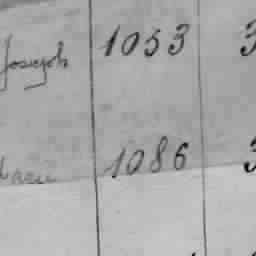 Joseph 1053 3
1086 3